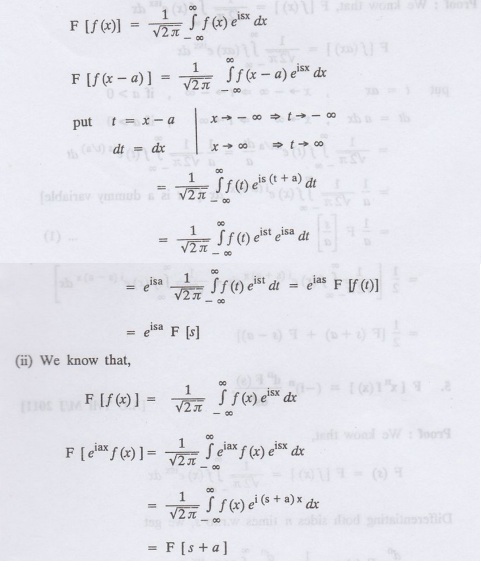 F [f(x)] = 1/√2π ∫_{-∞}^{∞} f(x) e^{isx} dx
F [f(x − a)] = 1/√2π ∫_{-∞}^{∞} f(x − a) e^{isx} dx
put t = x − a | x → − ∞ ⇒ t → − ∞
dt = dx | x → ∞ ⇒ t → ∞
= 1/√2π ∫_{-∞}^{∞} f(t) e^{is (t + a)} dt
= 1/√2π ∫_{-∞}^{∞} f(t) e^{ist} e^{isa} dt
= e^{isa} 1/√2π ∫_{-∞}^{∞} f(t) e^{ist} dt = e^{ias} F [f(t)]
= e^{isa} F [s]
(ii) We know that,
F [f(x)] = 1/√2π ∫_{-∞}^{∞} f(x) e^{isx} dx
F [e^{iax} f(x)] = 1/√2π ∫_{-∞}^{∞} e^{iax} f(x) e^{isx} dx
= 1/√2π ∫_{-∞}^{∞} f(x) e^{i (s + a) x} dx
= F [s + a]